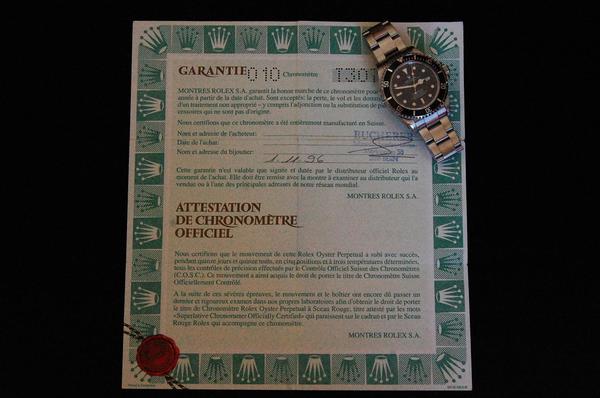 GARANTIE 010 Chronomètre T301
MONTRES ROLEX S.A. garantit la bonne marche de ce chronomètre pour
année à partir de la date d'achat. Sont exceptés: la perte, le vol et les
d'un traitement non approprié – y compris l'adjonction ou la substitution de
cessoires qui ne sont pas d'origine.
Nous certifions que ce chronomètre a été entièrement manufacturé en Suisse.
Nom et adresse de l'acheteur:
BUCHERER
Date de l'achat:
Nom et adresse du bijoutier:
1.11.96
Cette garantie n'est valable que signée et datée par le distributeur officiel Rolex
au moment de l'achat. Elle doit être remise avec la montre à examiner au distributeur qui l'a
vendue ou à l'une des principales adresses de notre réseau mondial.
MONTRES ROLEX S.A.
ATTESTATION
DE CHRONOMÈTRE
OFFICIEL
Nous certifions que le mouvement de cette Rolex Oyster Perpetual a subi avec succès,
pendant quinze jours et quinze nuits, en cinq positions et à trois températures déterminées,
tous les contrôles de précision effectués par le Contrôle Officiel Suisse des Chronomètres
(C.O.S.C.). Ce mouvement a ainsi acquis le droit de porter le titre de Chronomètre Suisse
Officiellement Contrôlé.
A la suite de ces sévères épreuves, le mouvement et le boîtier ont encore dû passer un
dernier et rigoureux examen dans nos propres laboratoires afin d'obtenir le droit de porter
le titre de Chronomètre Rolex Oyster Perpetual à Sceau Rouge, titre attesté par les mots
«Superlative Chronometer Officially Certified» qui paraissent sur le cadran et par le Sceau
Rouge Rolex qui accompagne ce chronomètre.
MONTRES ROLEX S.A.